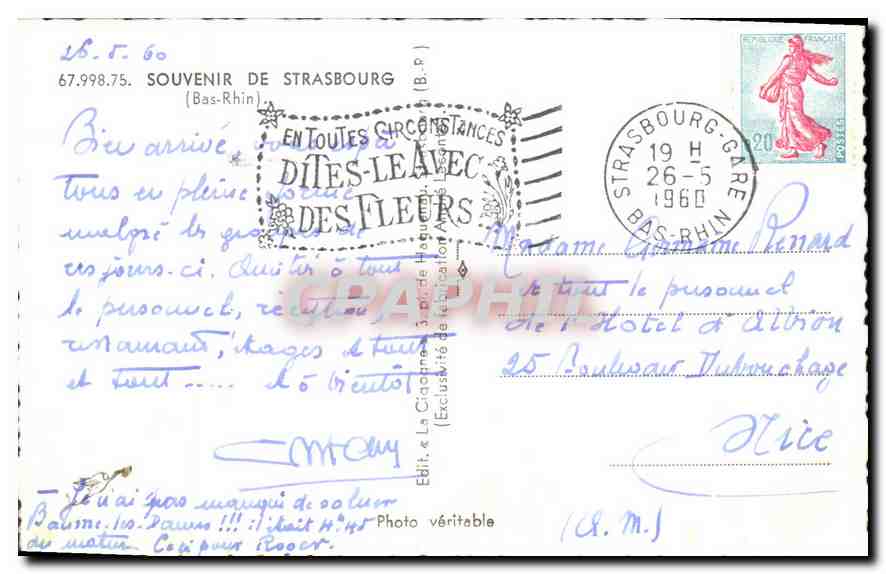 26.5.60
67.998.75. SOUVENIR DE STRASBOURG
(Bas-Rhin).
Bien arrivé,
tous en pleine forme
malgré les
ces jours-ci. à tout
le personnel, réception,
restaurant, étages et tout
et tout ..... et à bientôt
Je n'ai pas manqué de saluer
Baume-les-Dames !!! il était 4h45
du matin Ceci pour Roger.
EN TOUTES CIRCONSTANCES
DITES-LE AVEC
DES FLEURS
STRASBOURG-GARE
19 H
26-5
1960
BAS-RHIN
REPUBLIQUE FRANÇAISE
0,20
POSTES
Edit. « La Cigogne » 3, pl. de Haguenau (B.-R)
(Exclusivité de fabrication André Leconte)
GRAPHIL
Madame Germaine Renard
et tout le personnel
de l'Hotel d'Albion
25 Boulevard Dubouchage
Nice
(A.M.)
Photo véritable